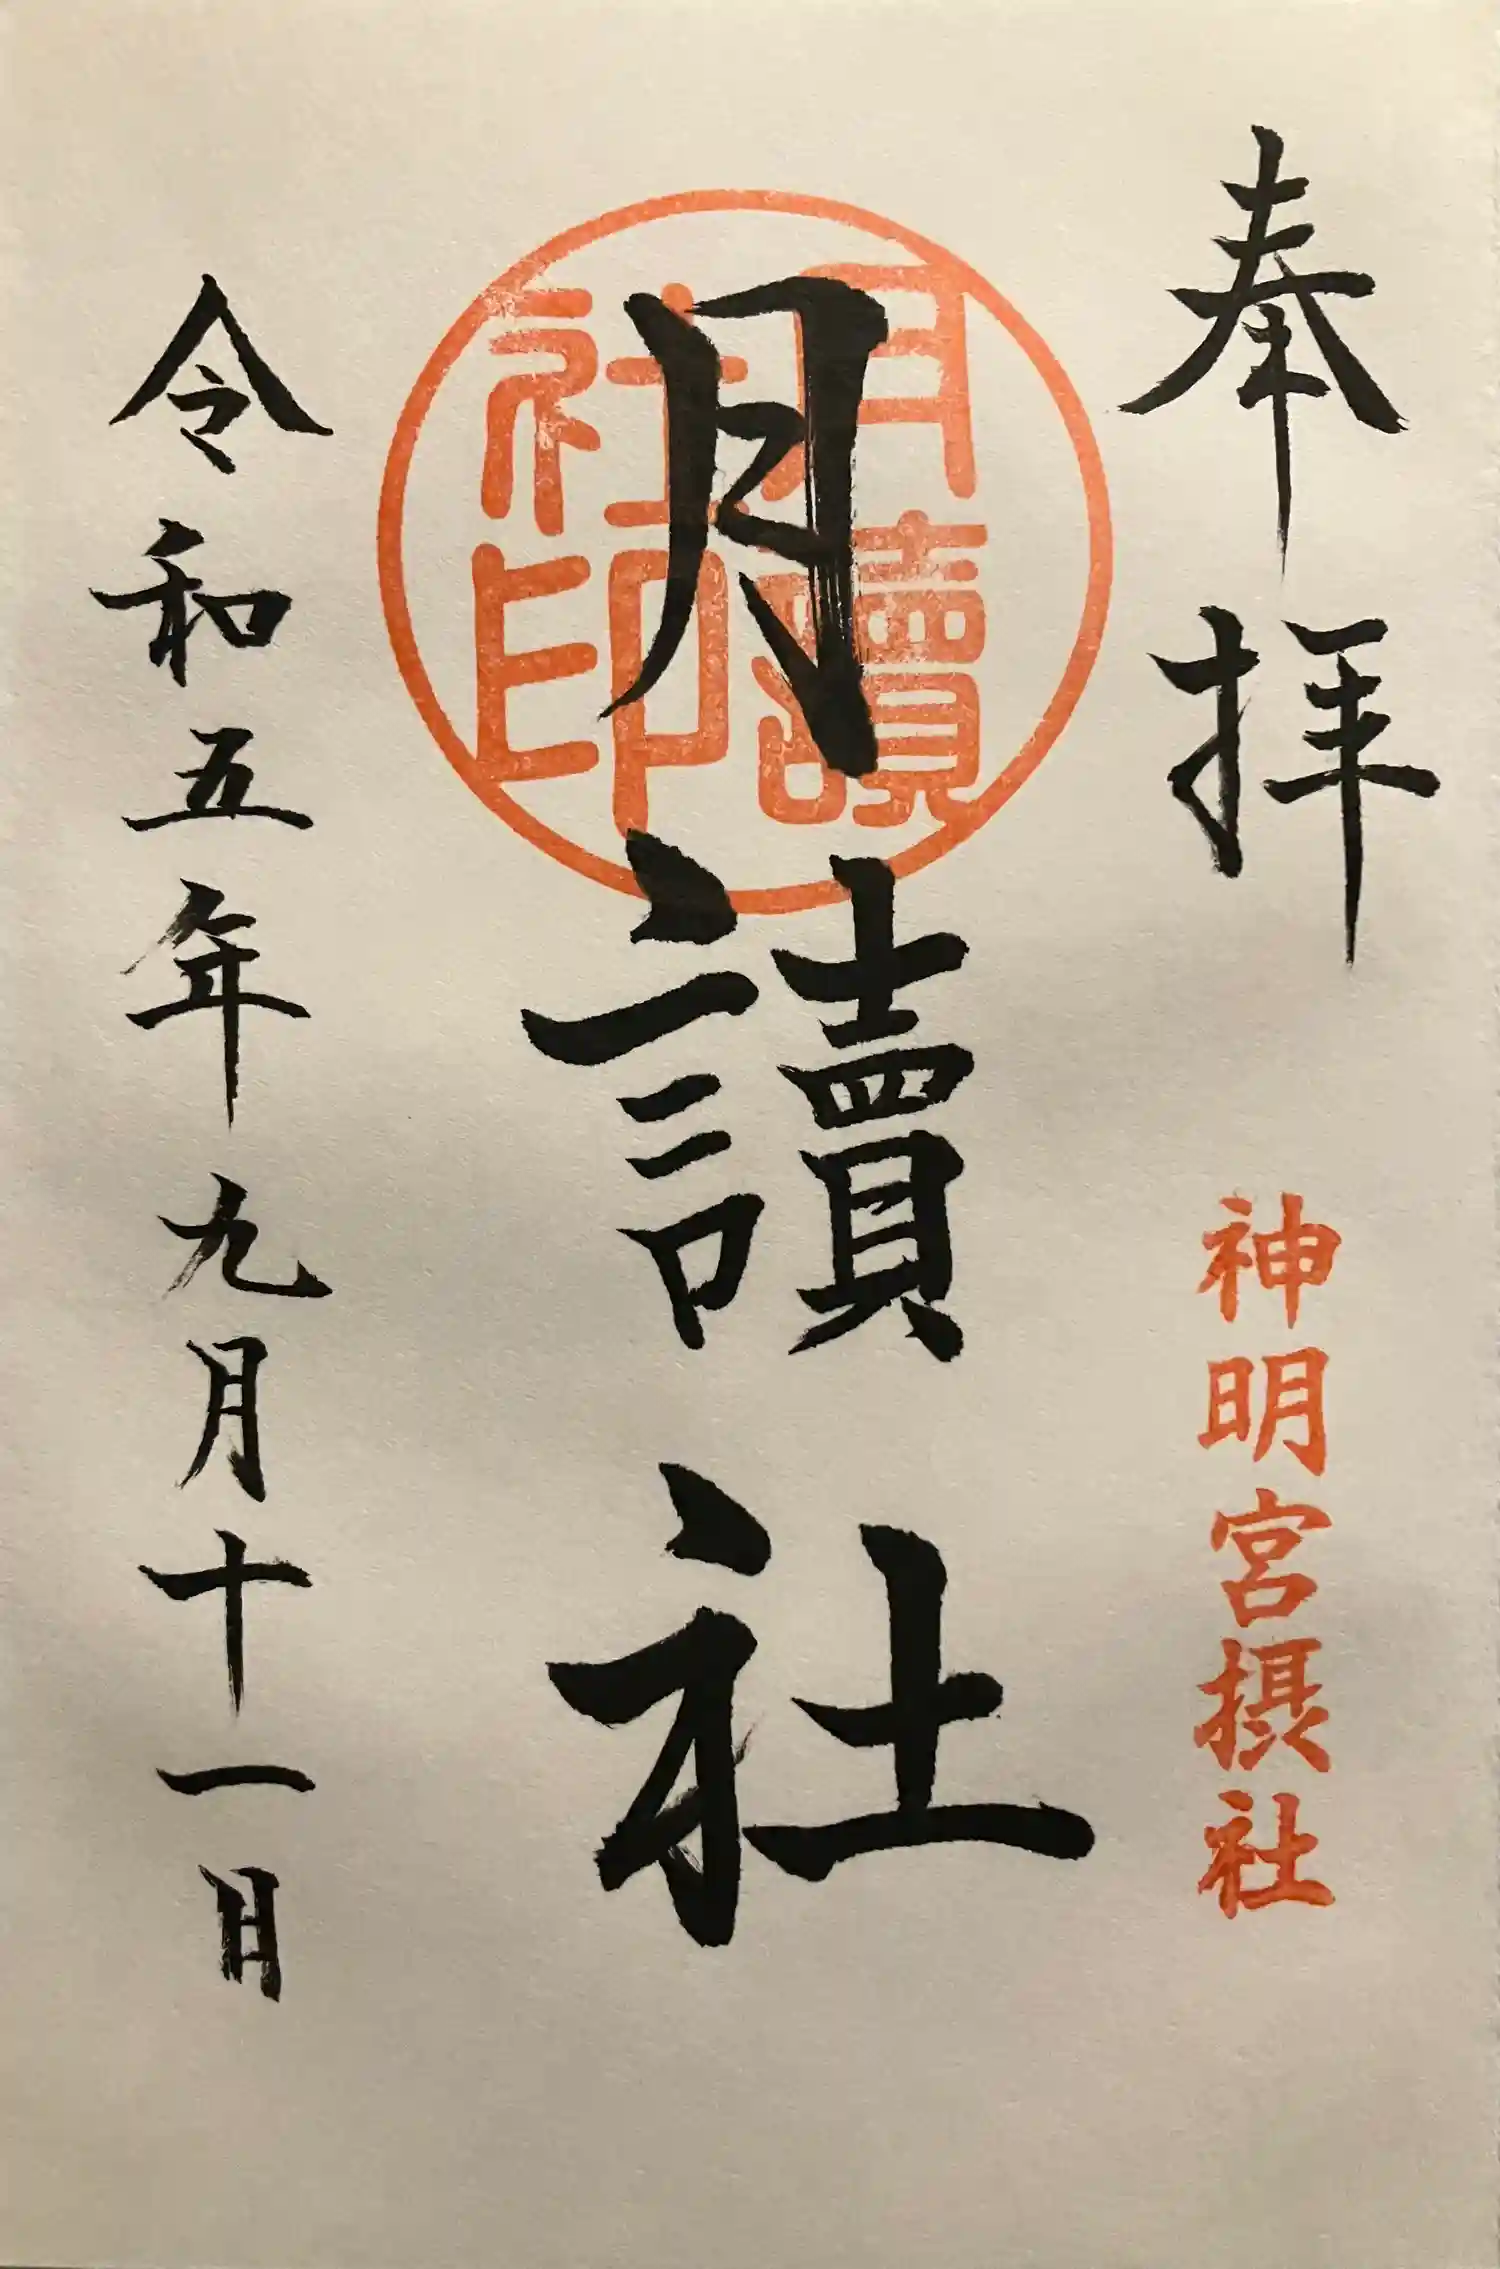 奉拝
神明宮摂社
月讀社
月讀
社印
令和五年九月十一日